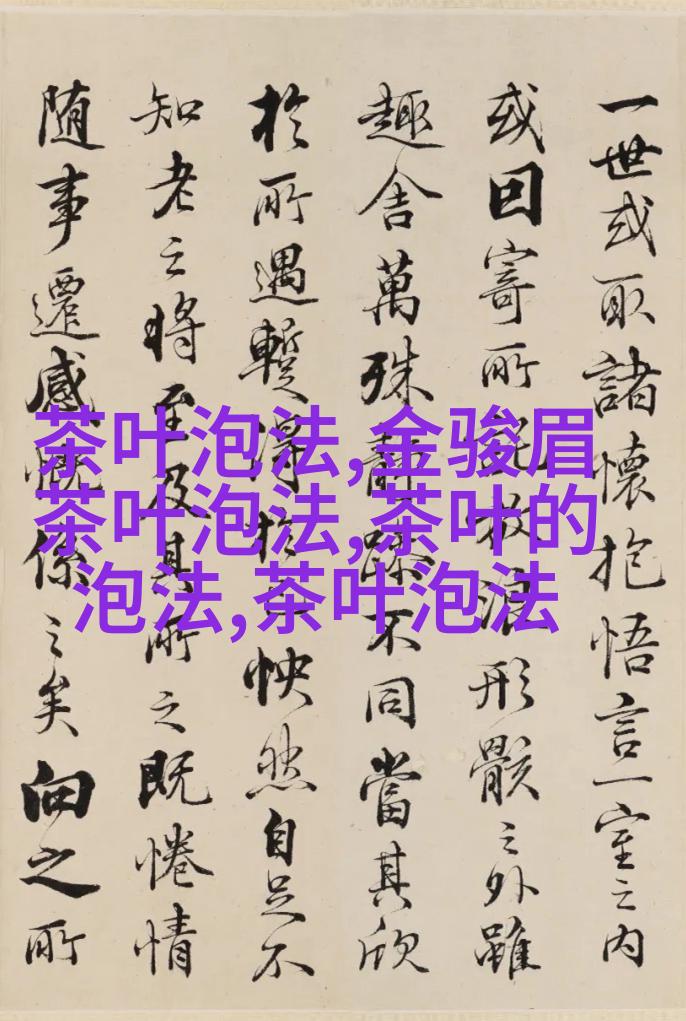 一世或取諸懷抱悟言一室之内
或因寄所託放浪形骸之外雖
趣舍萬殊靜躁不同當其欣
於所遇暫得於怏然自足不
知老之將至及其所之既惓情
随事遷感慨係之矣向之所
茶叶泡法,金骏眉
茶叶泡法,茶叶的
泡法,茶叶泡法